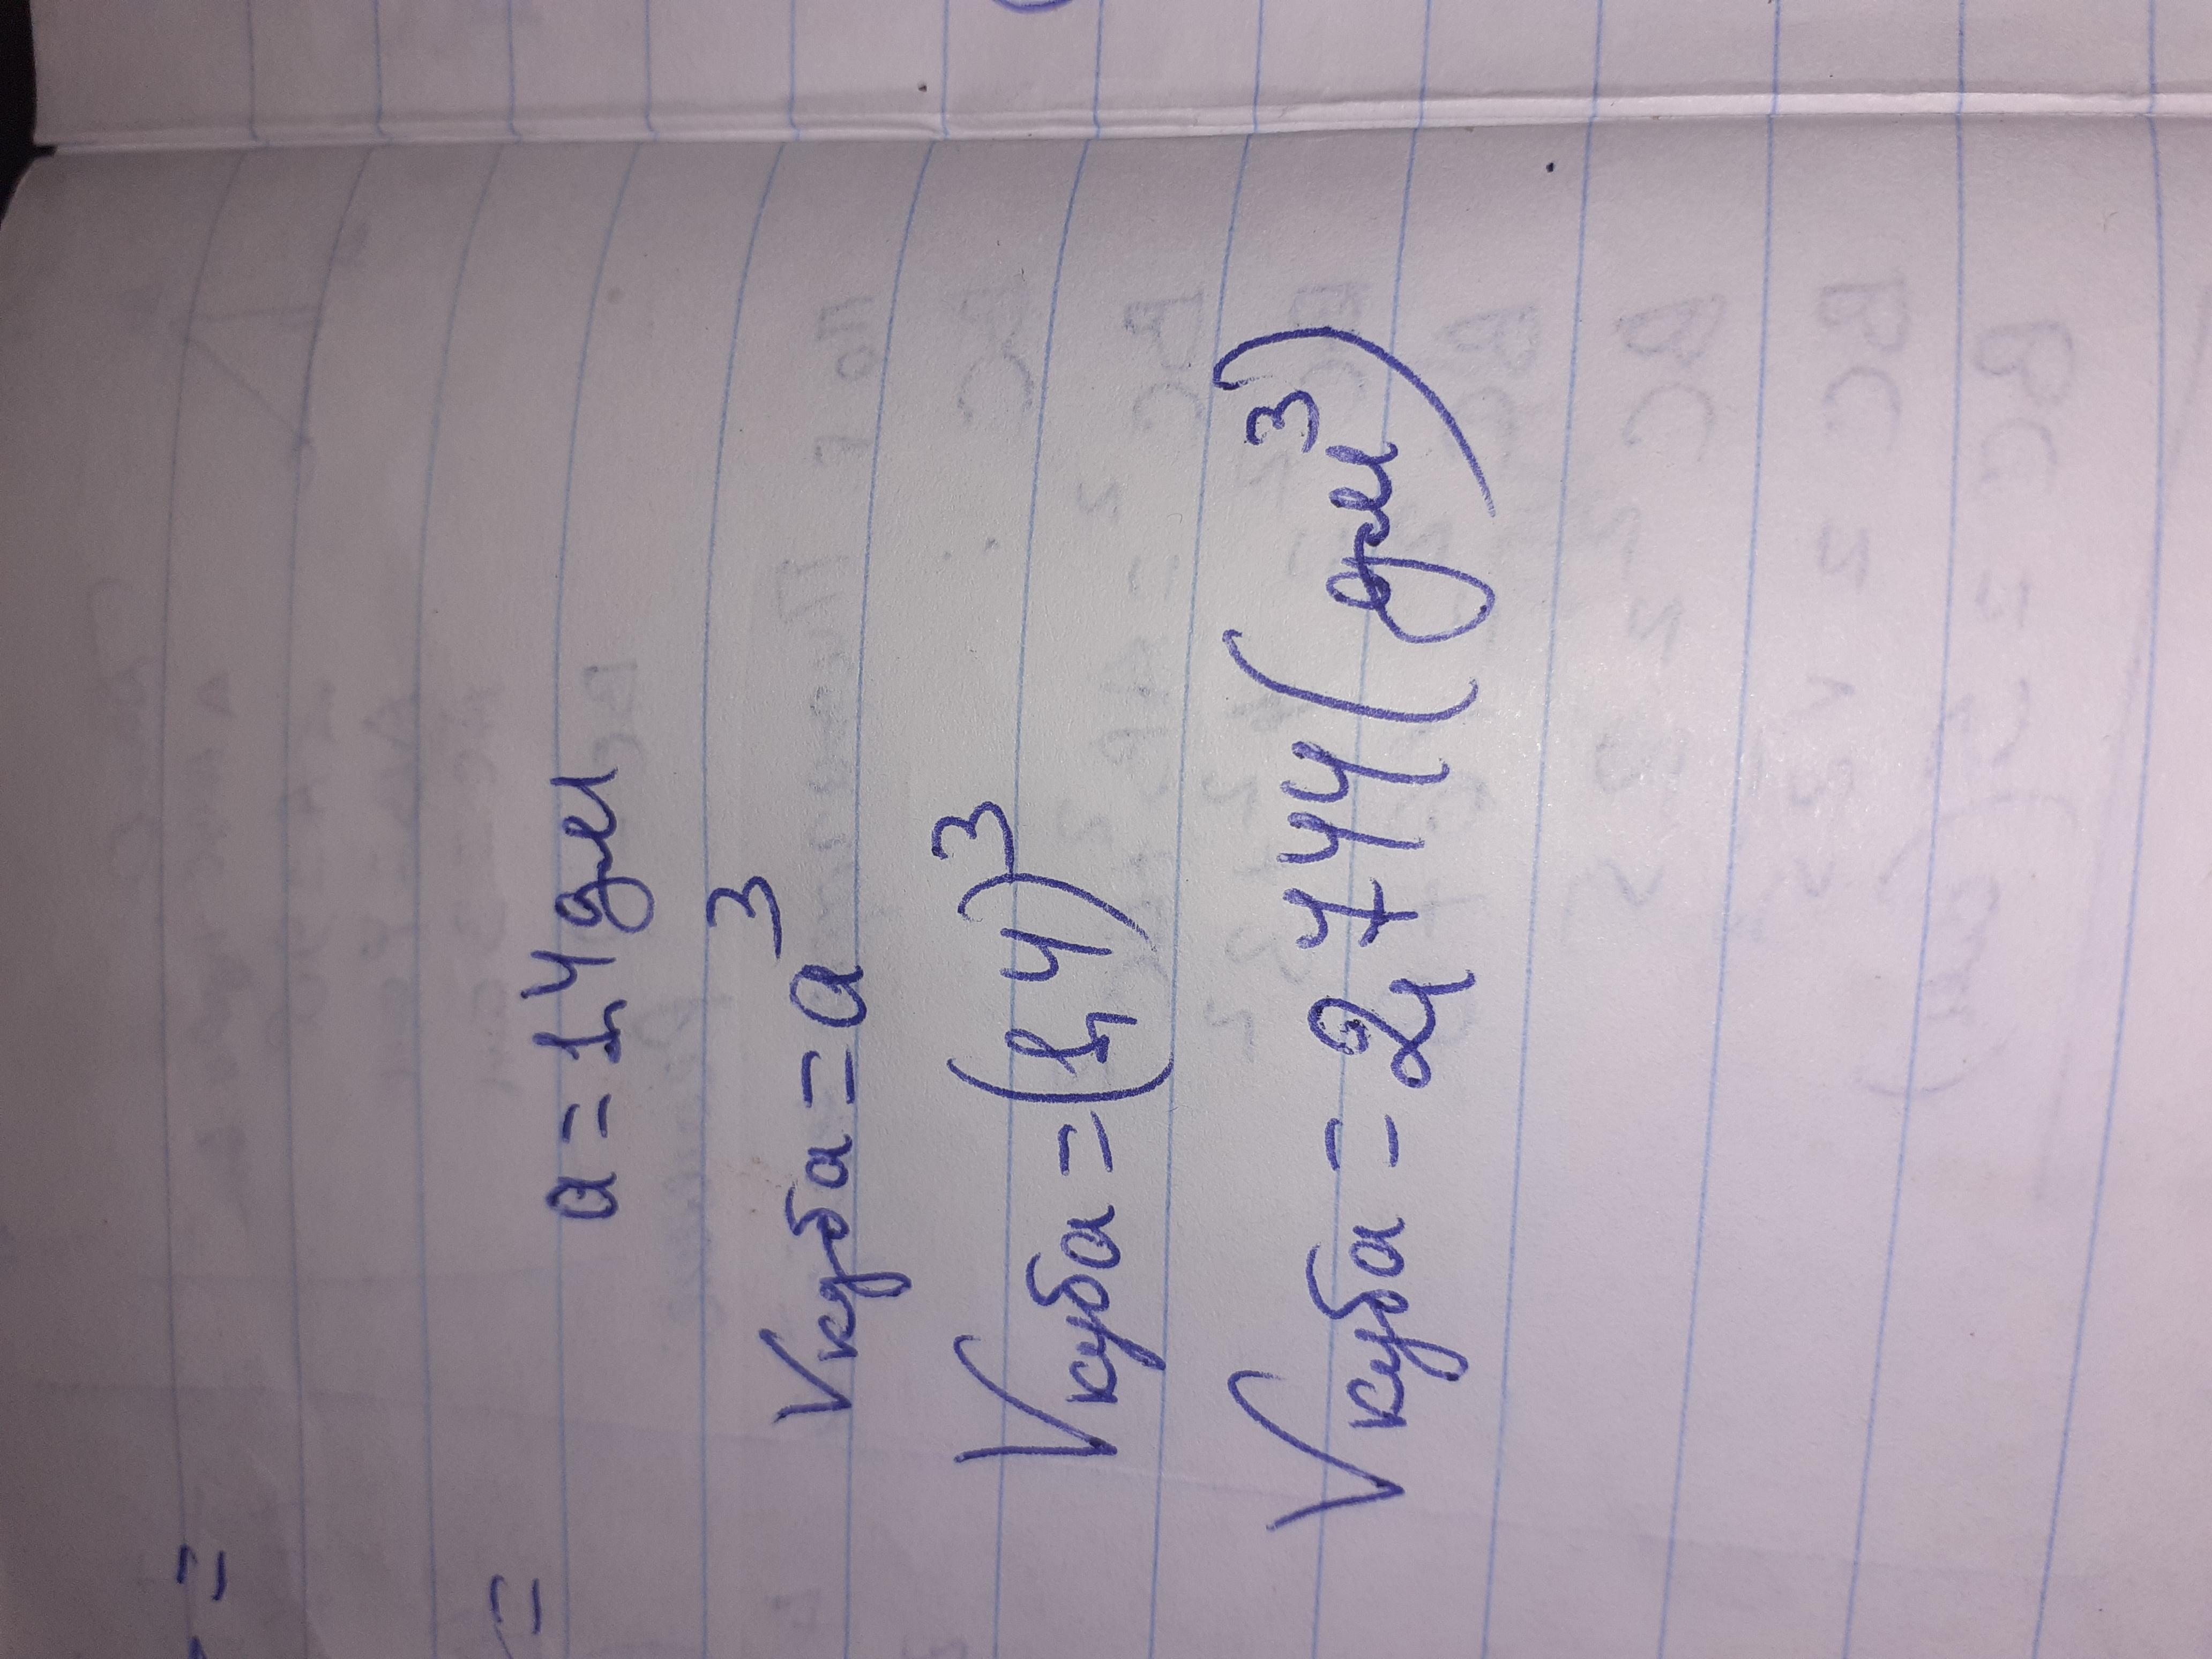 a = 1,4 дм
Vкуба = a³
Vкуба = (1,4)³
Vкуба = 2,744 (дм³)